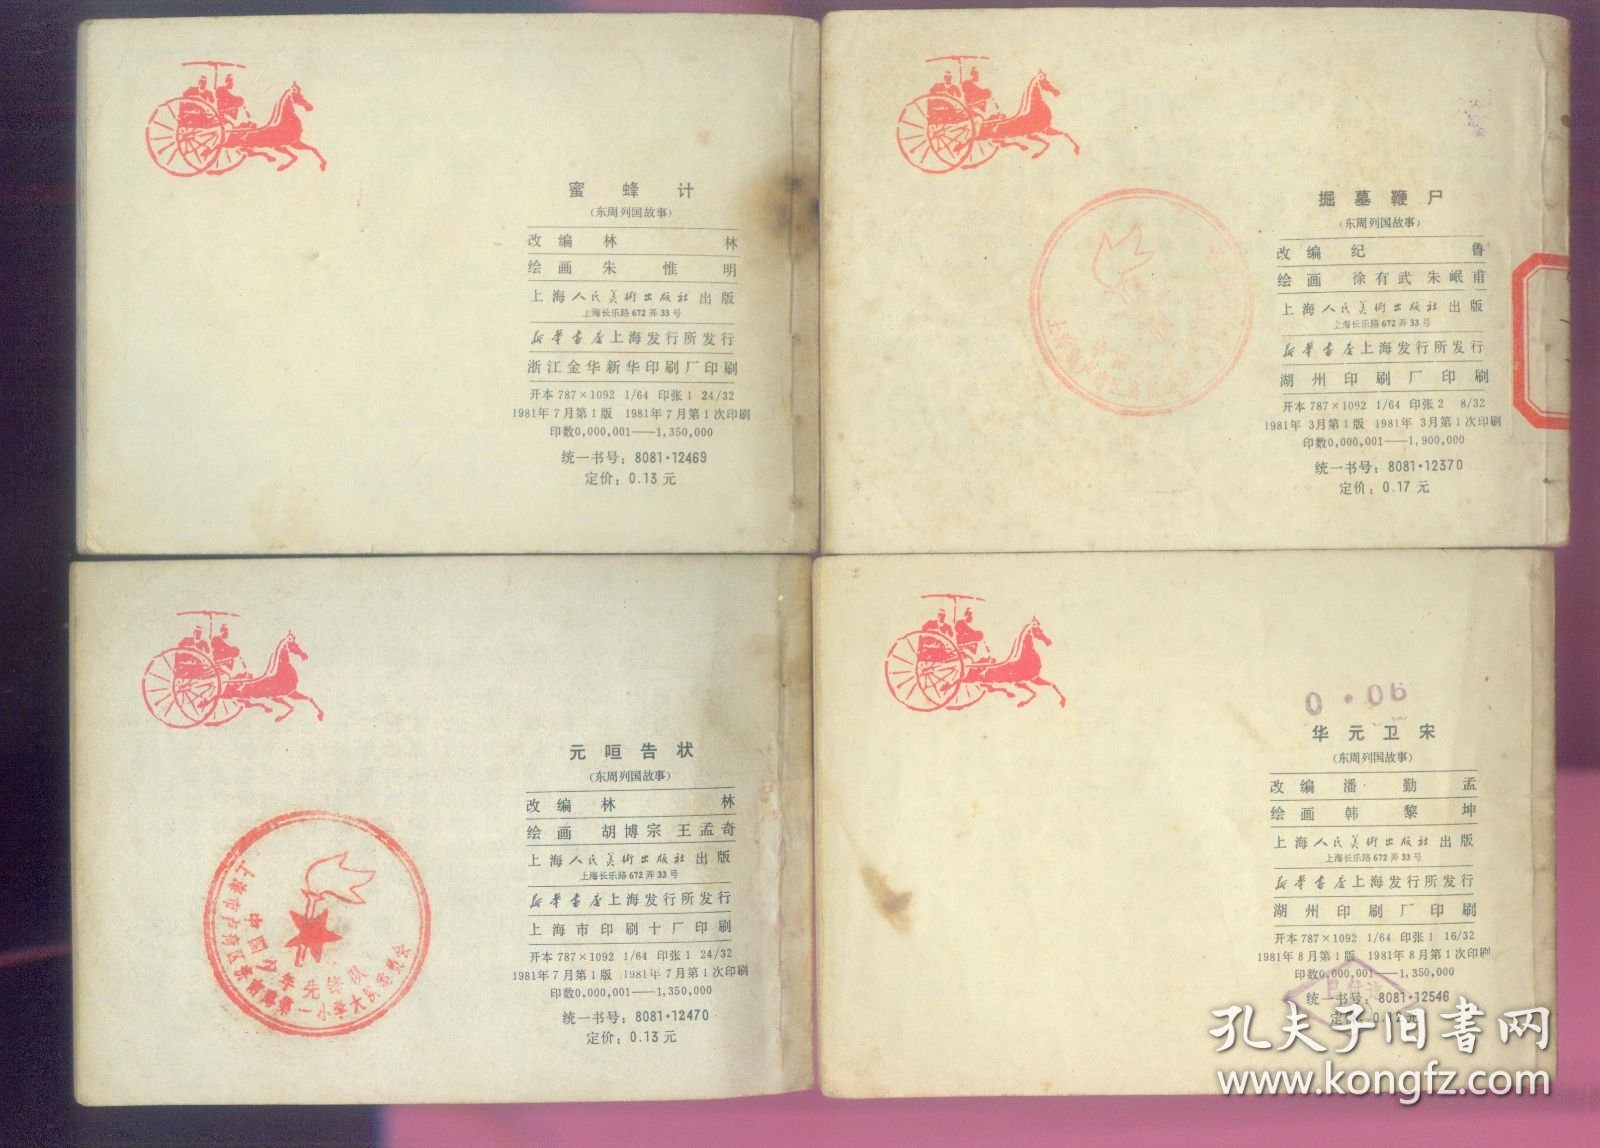 蜜蜂计
(东周列国故事)
改编 林林
绘画 朱惟明
上海人民美術出版社出版
上海长乐路672弄33号
新华书店上海发行所发行
浙江金华新华印刷厂印刷
开本787×1092 1/64 印张1 24/32
1981年7月第1版 1981年7月第1次印刷
印数0,000,001——1,350,000
统一书号：8081·12469
定价：0.13元
掘墓鞭尸
(东周列国故事)
改编 纪鲁
绘画 徐有武 朱岷甫
上海人民美術出版社出版
上海长乐路672弄33号
新华书店上海发行所发行
湖州印刷厂印刷
开本787×1092 1/64 印张2 8/32
1981年3月第1版 1981年3月第1次印刷
印数0,000,001——1,900,000
统一书号：8081·12370
定价：0.17元
元咺告状
(东周列国故事)
改编 林林
绘画 胡博宗 王孟奇
上海人民美術出版社出版
上海长乐路672弄33号
新华书店上海发行所发行
上海市印刷十厂印刷
开本787×1092 1/64 印张1 24/32
1981年7月第1版 1981年7月第1次印刷
印数0,000,001——1,350,000
统一书号：8081·12470
定价：0.13元
中国少年先锋队
第一小学大队委员会
0·06
华元卫宋
(东周列国故事)
改编 潘勤孟
绘画 韩黎坤
上海人民美術出版社出版
上海长乐路672弄33号
新华书店上海发行所发行
湖州印刷厂印刷
开本787×1092 1/64 印张1 16/32
1981年8月第1版 1981年8月第1次印刷
印数0,000,001——1,350,000
统一书号：8081·12546
定价：0.12元
孔夫子旧书网
www.kongfz.com